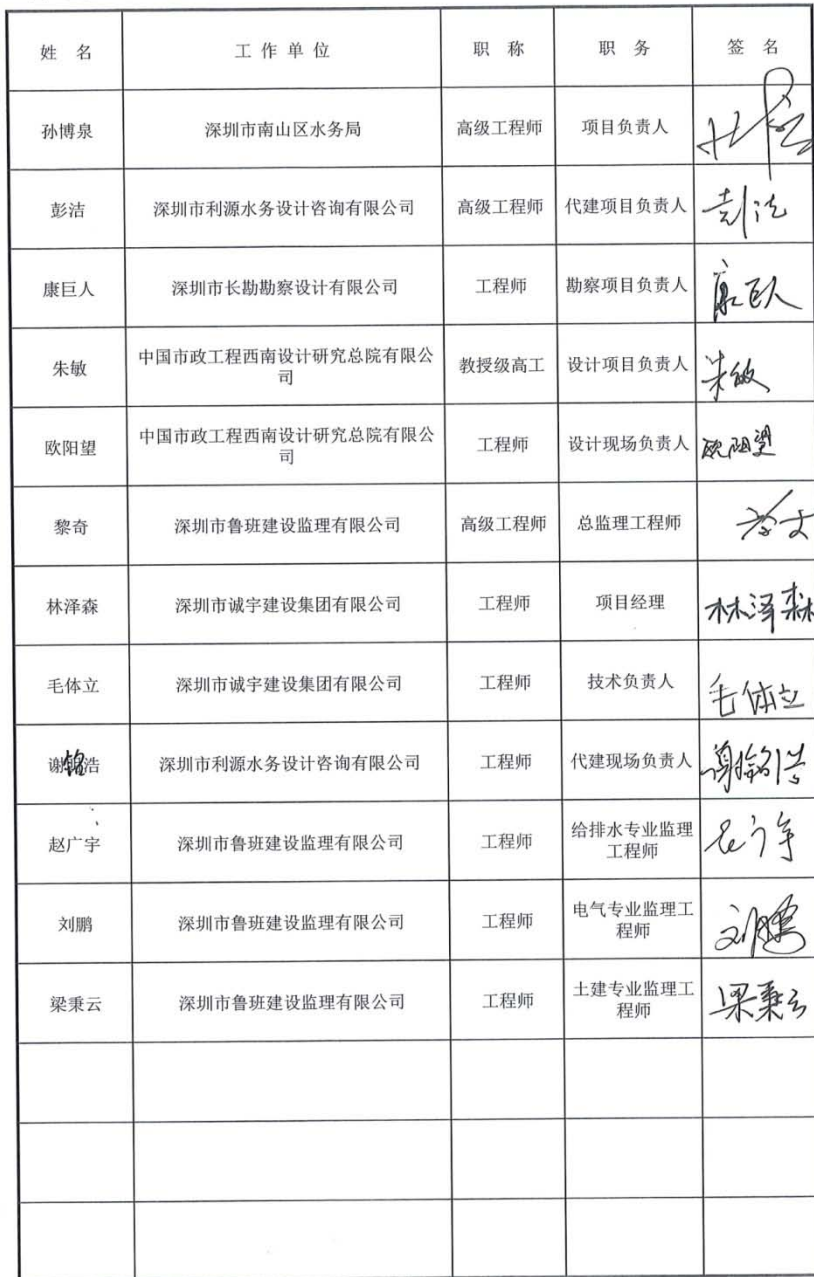 姓 名 工 作 单 位 职 称 职 务 签 名
孙博泉 深圳市南山区水务局 高级工程师 项目负责人
彭洁 深圳市利源水务设计咨询有限公司 高级工程师 代建项目负责人 彭洁
康巨人 深圳市长勘勘察设计有限公司 工程师 勘察项目负责人 康巨人
朱敏 中国市政工程西南设计研究总院有限公
司 教授级高工 设计项目负责人 朱敏
欧阳望 中国市政工程西南设计研究总院有限公
司 工程师 设计现场负责人 欧阳望
黎奇 深圳市鲁班建设监理有限公司 高级工程师 总监理工程师
林泽森 深圳市诚宇建设集团有限公司 工程师 项目经理 林泽森
毛体立 深圳市诚宇建设集团有限公司 工程师 技术负责人 毛体立
谢铭浩 深圳市利源水务设计咨询有限公司 工程师 代建现场负责人 谢铭浩
赵广宇 深圳市鲁班建设监理有限公司 工程师 给排水专业监理
工程师
刘鹏 深圳市鲁班建设监理有限公司 工程师 电气专业监理工
程师 刘鹏
梁秉云 深圳市鲁班建设监理有限公司 工程师 土建专业监理工
程师 梁秉云